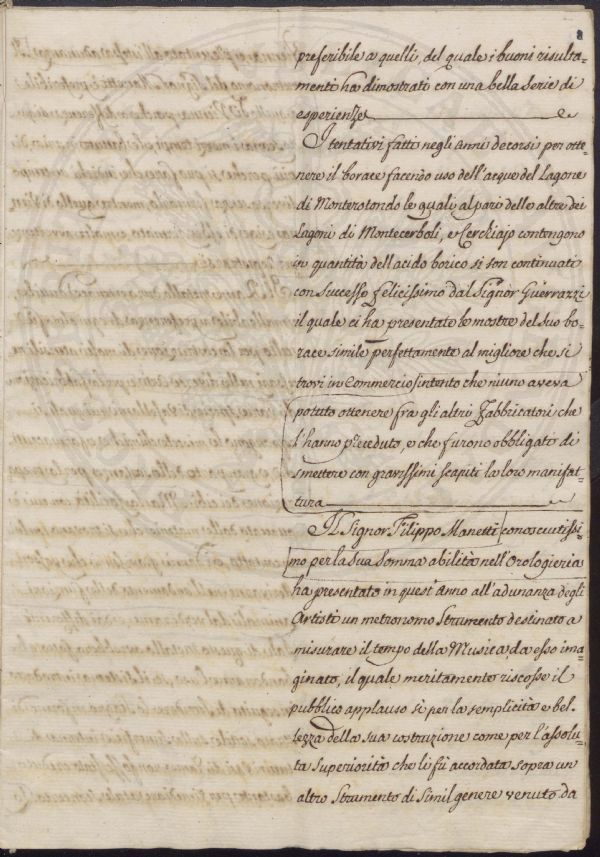 8
preferibile a quelli, del quale i buoni risulta-
menti ha dimostrati con una bella serie di
esperienze
I tentativi fatti negli anni decorsi per otte-
nere il borace facendo uso dell'acque del Lagone
di Monterotondo le quali al pari delle altre dei
Lagoni di Montecerboli, e Cerchiajo contengono
in quantità dell'acido borico si son continuati
con Successo felicissimo dal Signor Guerrazzi
il quale ci ha presentato le mostre del suo bo-
race simile perfettamente al migliore che si
trovi in Commercio, intento che niuno aveva
potuto ottenere fra gli altri Fabbricatori che
l'hanno preceduto, e che furono obbligati di
smettere con gravissimi scapiti la loro manifat-
tura
Il Signor Filippo Manetti conosciutissi-
mo per la sua somma abilità nell'Orologieria
ha presentato in quest'anno all'adunanza degli
Artisti un metronomo Strumento destinato a
misurare il tempo della Musica da esso ima-
ginato, il quale meritamente riscosse il
pubblico applauso sì per la semplicità e bel-
lezza della sua costruzione come per l'assolu-
ta Superiorità che li fù accordata sopra un
altro Strumento di simil genere venuto da